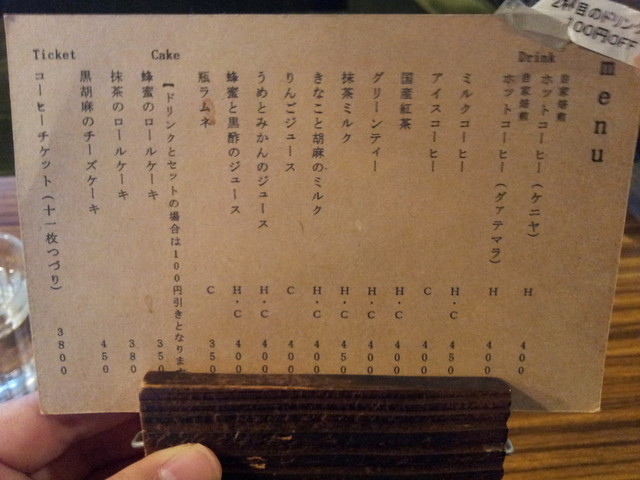 2杯目のドリンク
100円OFF
menu
Drink
自家焙煎 ホットコーヒー(ケニヤ) H 400
自家焙煎 ホットコーヒー(グァテマラ) H 400
ミルクコーヒー H・C 450
アイスコーヒー C 400
国産紅茶 H・C 400
グリーンティー H・C 400
抹茶ミルク H・C 450
きなこと胡麻のミルク H・C 400
りんごジュース C 400
うめとみかんのジュース H・C 400
蜂蜜と黒酢のジュース H・C 400
瓶ラムネ C 350
Cake
【ドリンクとセットの場合は100円引きとなります
蜂蜜のロールケーキ 350
抹茶のロールケーキ 380
黒胡麻のチーズケーキ 450
Ticket
コーヒーチケット(十一枚つづり) 3800